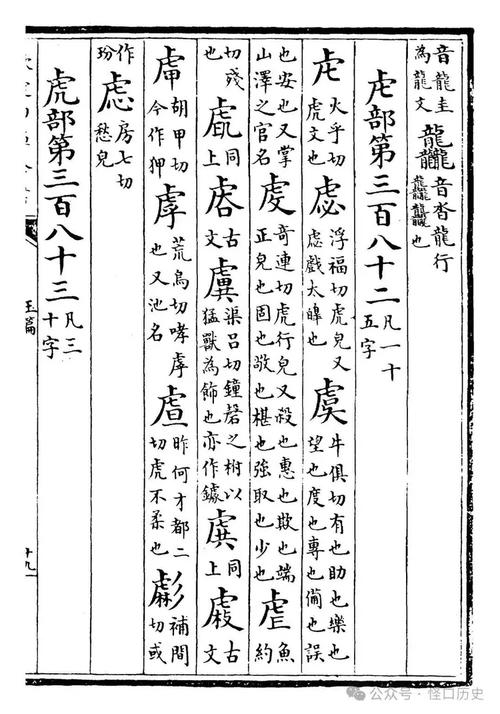 音龍圭為龍文 龘 音沓龍行龘龘也
虍部第三百八十二 凡一十五字
虍 火乎切虎文也 虙 浮福切虎皃又虙戲太皡也 虞 牛俱切有也助也樂也望也度也專也備也誤
也安也又掌山澤之官名 虔 奇連切虎行皃又殺也惠也欺也端正皃也固也敬也椹也強取也少也 虐 魚約
切殘也 同上 古文 虡 渠呂切鐘磬之柎以猛獸為飾也亦作鐻 同上 古文
胡甲切今作狎 虖 荒烏切哮虖也又池名 虘 昨何才都二切虎不柔也 補間切或
作玢 房七切愁皃
虎部第三百八十三 凡三十字
玉篇
十九
公众号·怪口历史